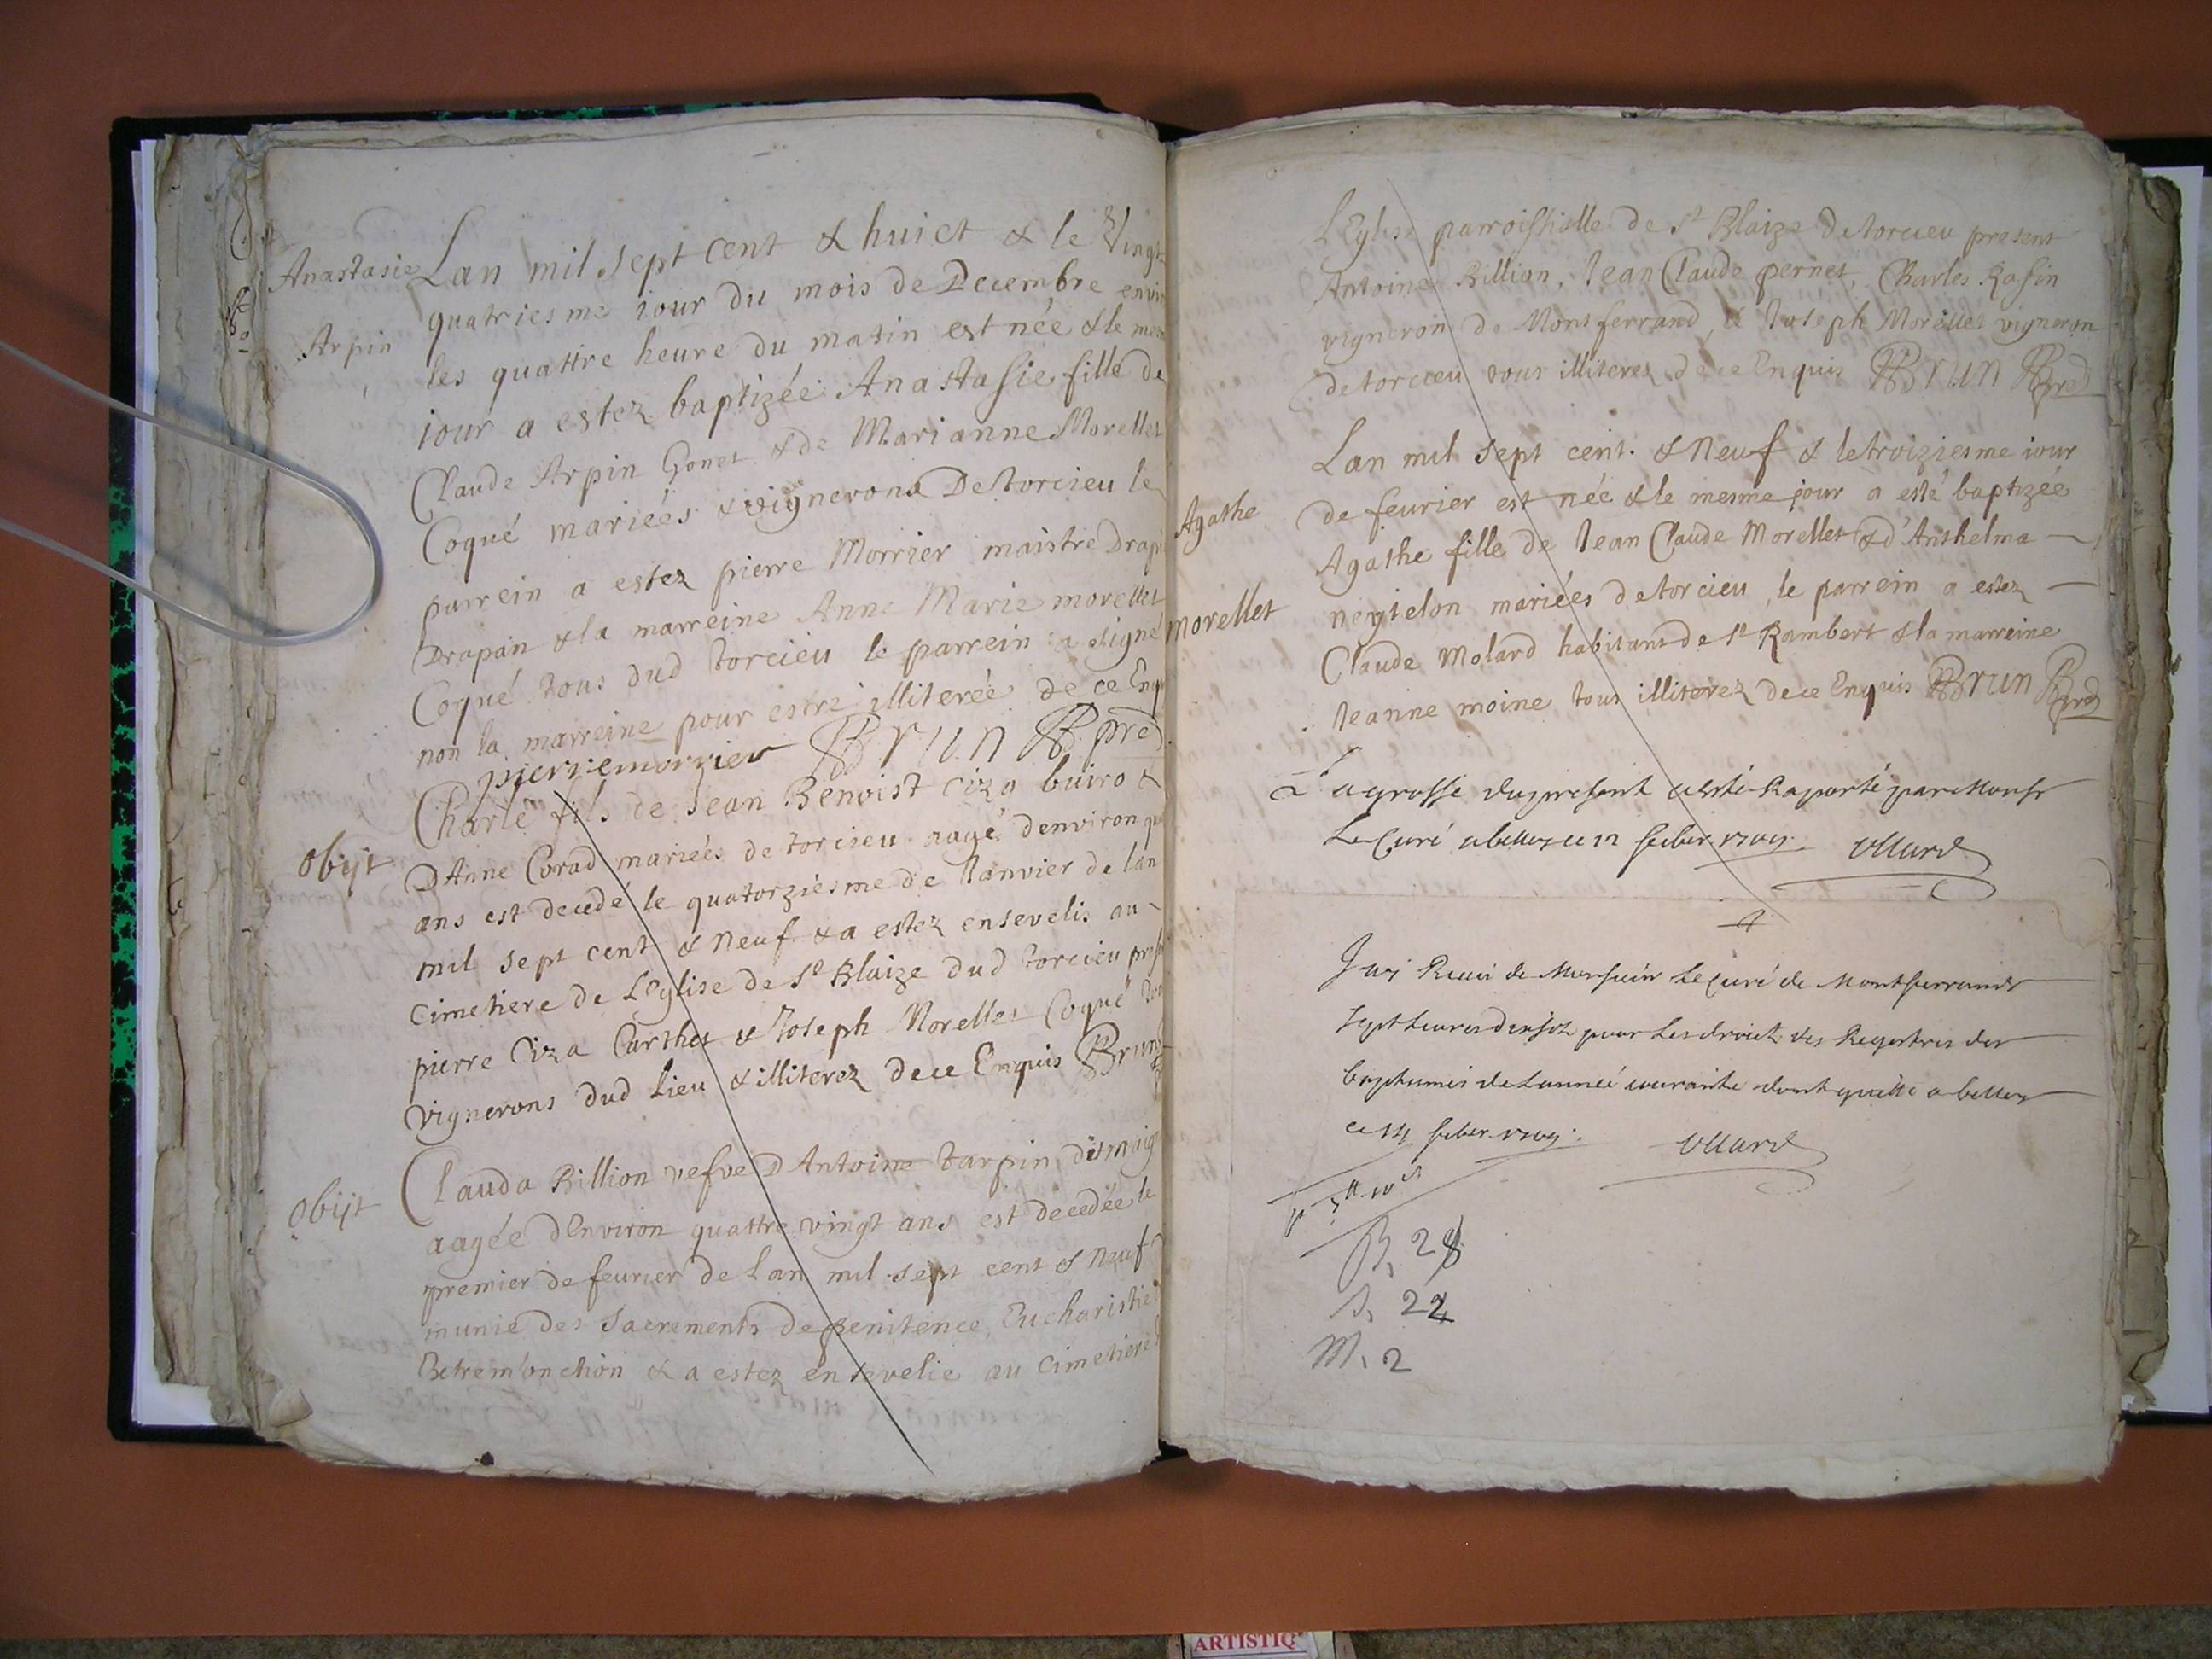 Anastasie
Arpin
Lan mil sept cent & huict & le Vingt
quatriesme iour du mois de Decembre envir
les quattre heure du matin est née & le mes
iour a estez baptizée Anastasie fille de
Claude Arpin Gonet & de Marianne Morellet
Coqué mariéés & vignerons De torcieu le
parrein a estez pierre Morrier maistre Drap
Drapan & la marreine Anne Marie morellet
Coqué tous dud torcieu le parrein a signé
non la marreine pour estre illiterée de ce Enq
pierre morrier Brun pred
obijt
Charle fils de Jean Benoist Ciza buiro &
D'Anne Corad mariéés de torcieu aagé denviron qu
ans est decedé le quatorziesme de Janvier de lan
mil sept cent & Neuf & a estez ensevelis au
Cimetiere de L'Eglise de St Blaize dud torcieu pres
pierre Ciza Carthet & Joseph Morellet Coqué
vignerons dud Lieu & illiterez de ce Enquis Brun
obijt
Clauda Billion vefve D'Antoine tarpin dit
aagée d'Environ quattre vingt ans est decedée le
premier de feurier de Lan mil sept cent & Neuf
munie des Sacrements de penitence Eucharistie
& a estez ensevelie au Cimetiere
L'Eglise parroissialle de St Blaize de torcieu present
Antoine Billion, Jean Claude pernet, Charles Rasin
vigneron de Montferrand, & Joseph Morellet vigneron
de torcieu tous illiterez de ce Enquis Brun pred
Agathe
morellet
Lan mil sept cent & Neuf & le troiziesme iour
de feurier est née & le mesme jour a esté baptizéé
Agathe fille de Jean Claude Morellet & d'Anthelma
neytelon mariéés de torcieu, le parrein a estez
Claude Molard habitant de St Rambert & la marreine
Jeanne moine tous illiterez de ce Enquis Brun pred
La grosse du present a esté Raporté par Monsr
Le Curé a belley ce 12 feber 1709. Ollard
Jay Receu de Monsieur Le Curé de Montferrand
sept livres dix solz pour Les droict des Registres des
baptumes de Lannéé courante dont quitte a belley
ce 14 feber 1709. Ollard
B. 28
S. 22
M. 2
ARTISTIQ